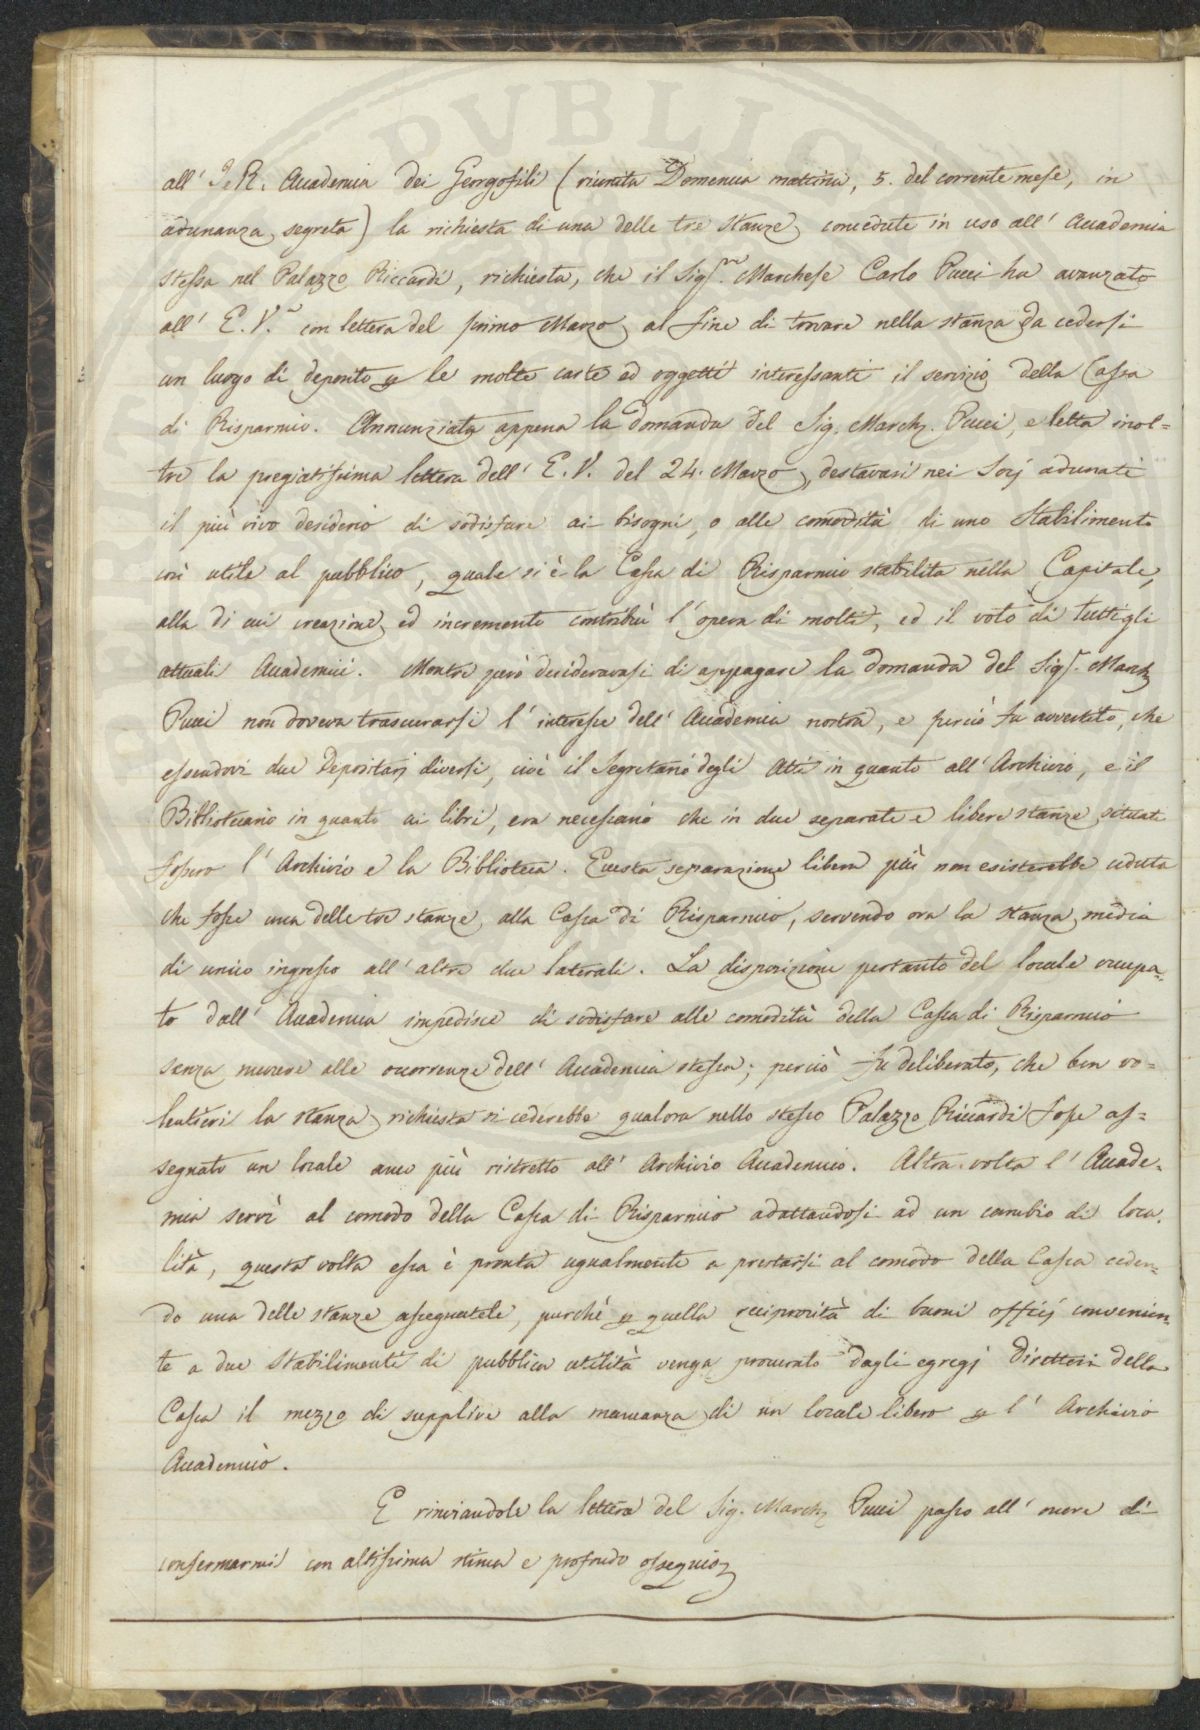 all' I. e R. Accademia dei Georgofili (riunita Domenica mattina, 5. del corrente mese, in
adunanza segreta) la richiesta di una delle tre stanze concedute in uso all' Accademia
stessa nel Palazzo Riccardi, richiesta, che il Sig.re Marchese Carlo Pucci ha avanzato
all' E. V.a con lettera del primo Marzo, al fine di trovare nella stanza da cedersi
un luogo di deposito p le molte carte ed oggetti interessanti il servizio della Cassa
di Risparmio. Annunziata appena la domanda del Sig. March. Pucci, e letta inol=
tre la pregiatissima lettera dell' E. V. del 24. Marzo, destavasi nei Socj adunati
il più vivo desiderio di sodisfare ai bisogni, o alle comodità di uno Stabilimento
così utile al pubblico, quale si è la Cassa di Risparmio stabilita nella Capitale,
alla di cui creazione, ed incremento contribuì l' opera di molti, ed il voto di tutti gli
attuali Accademici. Mentre però desideravasi di appagare la domanda del Sig.r March.
Pucci non doveva trascurarsi l' interesse dell' Accademia nostra, e perciò fu avvertito, che
essendovi due Depositarj diversi, cioè il Segretario degli Atti in quanto all' Archivio, e il
Bibliotecario in quanto ai libri, era necessario che in due separate e libere stanze situati
fossero l' Archivio e la Biblioteca. Questa separazione libera più non esisterebbe ceduta
che fosse una delle tre stanze, alla Cassa di Risparmio, servendo ora la stanza media
di unico ingresso all' altre due laterali. La disposizione pertanto del locale occupa=
to dall' Accademia impedisce di sodisfare alle comodità della Cassa di Risparmio
senza nuocere alle occorrenze dell' Accademia stessa; perciò fu deliberato, che ben vo=
lentieri la stanza richiesta si cederebbe qualora nello stesso Palazzo Riccardi fosse as=
segnato un locale anco più ristretto all' Archivio Accademico. Altra volta l' Accade=
mia servì al comodo della Cassa di Risparmio adattandosi ad un cambio di loca=
lità, questa volta essa è pronta ugualmente a prestarsi al comodo della Cassa ceden=
do una delle stanze assegnatele, purchè p quella reciprocità di buoni officj convenien=
te a due Stabilimenti di pubblica utilità venga procurato dagli egregj Direttori della
Cassa il mezzo di supplire alla mancanza di un locale libero p l' Archivio
Accademico.
E rinviandole la lettera del Sig. March. Pucci passo all' onore di
confermarmi con altissima stima e profondo ossequio
PVBLIC